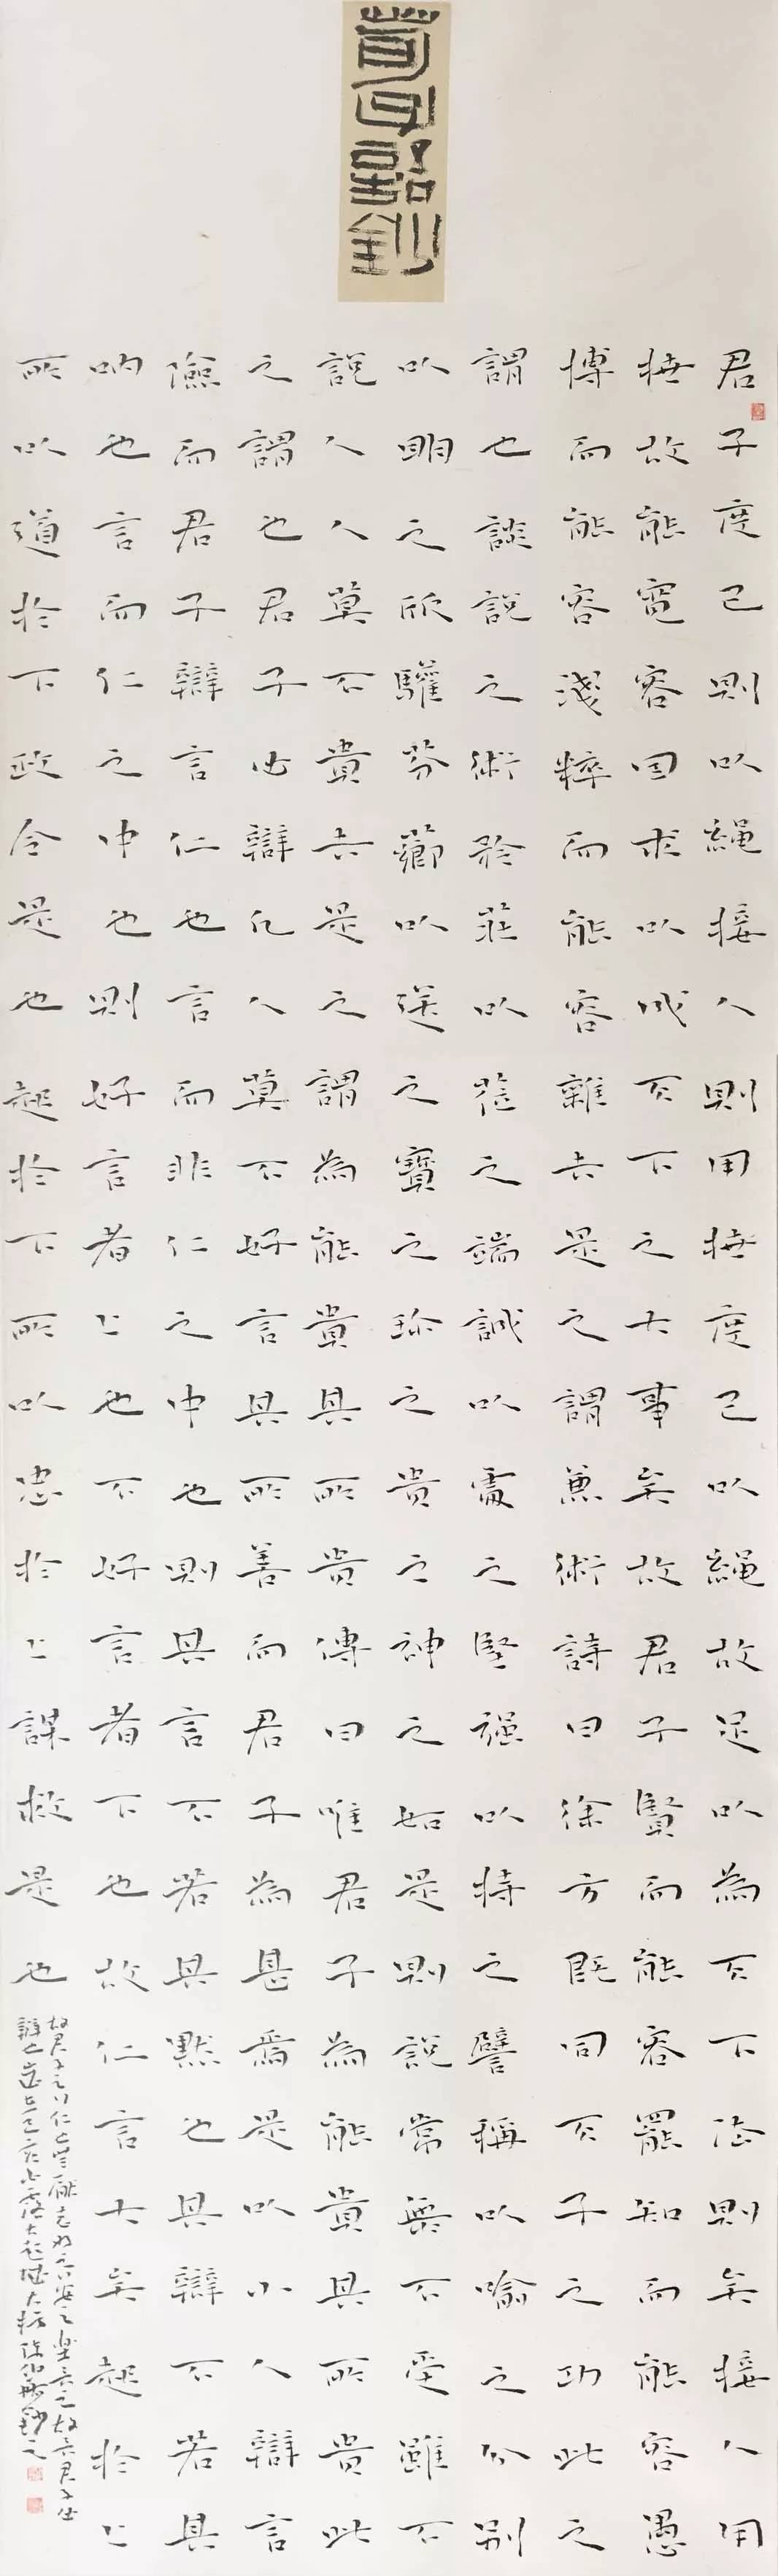 荀子語鈔
君子度己則以繩接人則用抴度己以繩故足以為天下法則矣接人用
抴故能寬容因求以成天下之大事矣故君子賢而能容罷知而能容愚
博而能容淺粹而能容雜夫是之謂兼術詩曰徐方既同天子之功此之
謂也談說之術矜莊以蒞之端誠以處之堅强以持之譬稱以喻之分別
以明之欣驩芬薌以送之寶之珍之貴之神之如是則說常無不受雖不
說人人莫不貴夫是之謂為能貴其所貴傳曰唯君子為能貴其所貴此
之謂也君子必辯凡人莫不好言其所善而君子為甚焉是以小人辯言
險而君子辯言仁也言而非仁之中也則其言不若其默也其辯不若其
吶也言而仁之中也則好言者上也不好言者下也故仁言大矣起於上
所以道於下政令是也起於下所以忠於上謀救是也
故君子之行仁也無厭志好之行安之樂言之故言君子必
辯也歲在己亥鈔之